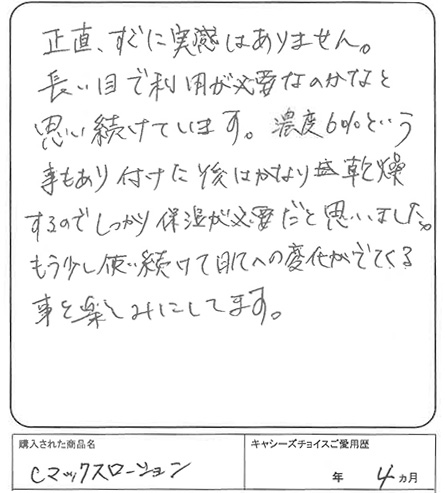 正直、すぐに実感はありません。
長い目で利用が必要なのかなと
思い続けています。濃度6%という
事もあり付けた後はかなり乾燥
するのでしっかり保湿が必要だと思いました。
もう少し使い続けて肌への変化がでてくる
事を楽しみにしてます。
購入された商品名
キャシーズチョイスご愛用歴
Cマックスローション
年 4 カ月